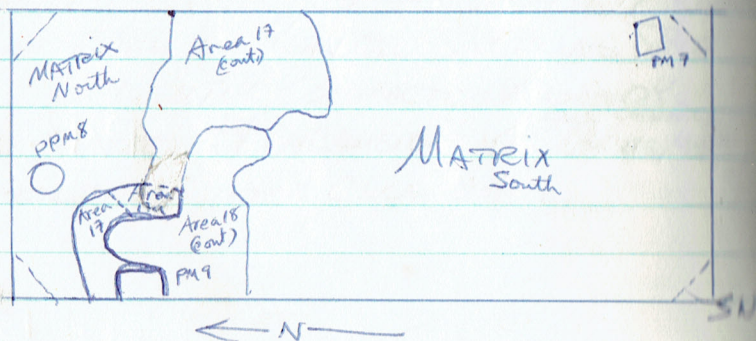 MATRIX
North
Area 17
(cont)
PM7
PPM8
MATRIX
South
Area
17
Area
Area 18
(cont)
PM9
N